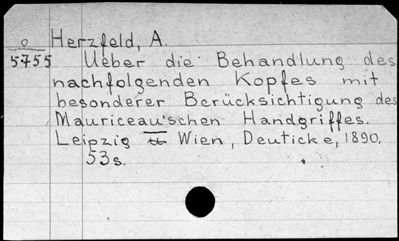 o Herzfeld, A.
5755 Ueber die Behandlung des
nachfolgenden Kopfes mit
besonderer Berücksichtigung des
Mauriceau'schen Handgriffes.
Leipzig u. Wien, Deuticke, 1890.
53s.